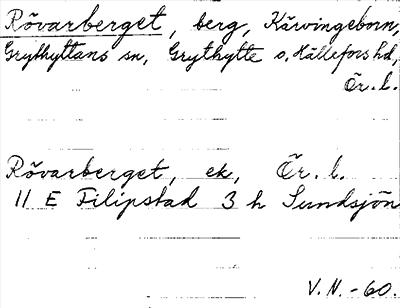 Rövarberget, berg, Kärvingeborn,
Grythyttans sn, Grythytte o. Hällefors hd,
Ör. l.
Rövarberget, ek, Ör. l.
11 E Filipstad 3 h Sundsjön
V.N. -60.